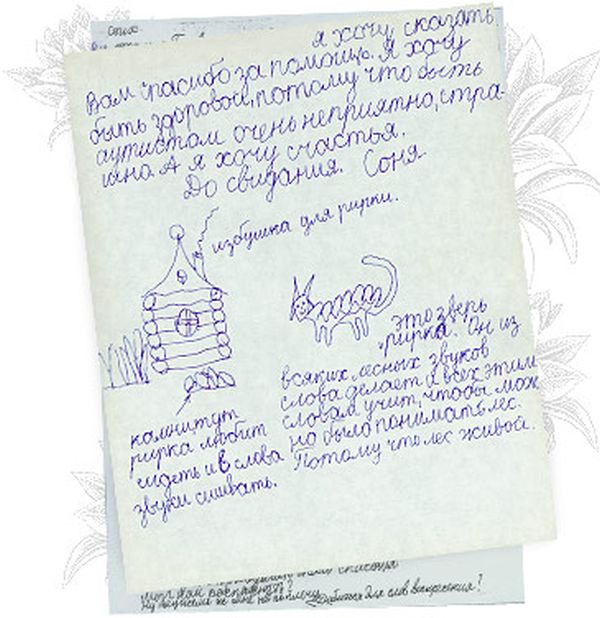 стих
я хочу сказать
Вам спасибо за помощь. Я хочу
быть здоровой, потому что быть
аутистом очень неприятно, стра-
шно. А я хочу счастья.
До свидания. Соня
избушка для рирки.
это зверь
"рирка". Он из
всяких лесных звуков
слова делает и всех этим
словам учит, чтобы мож
но было понимать лес.
Потому что лес живой.
камни тут
рирка любит
сидеть и в слова
звуки сшивать.
для слов воскресения!